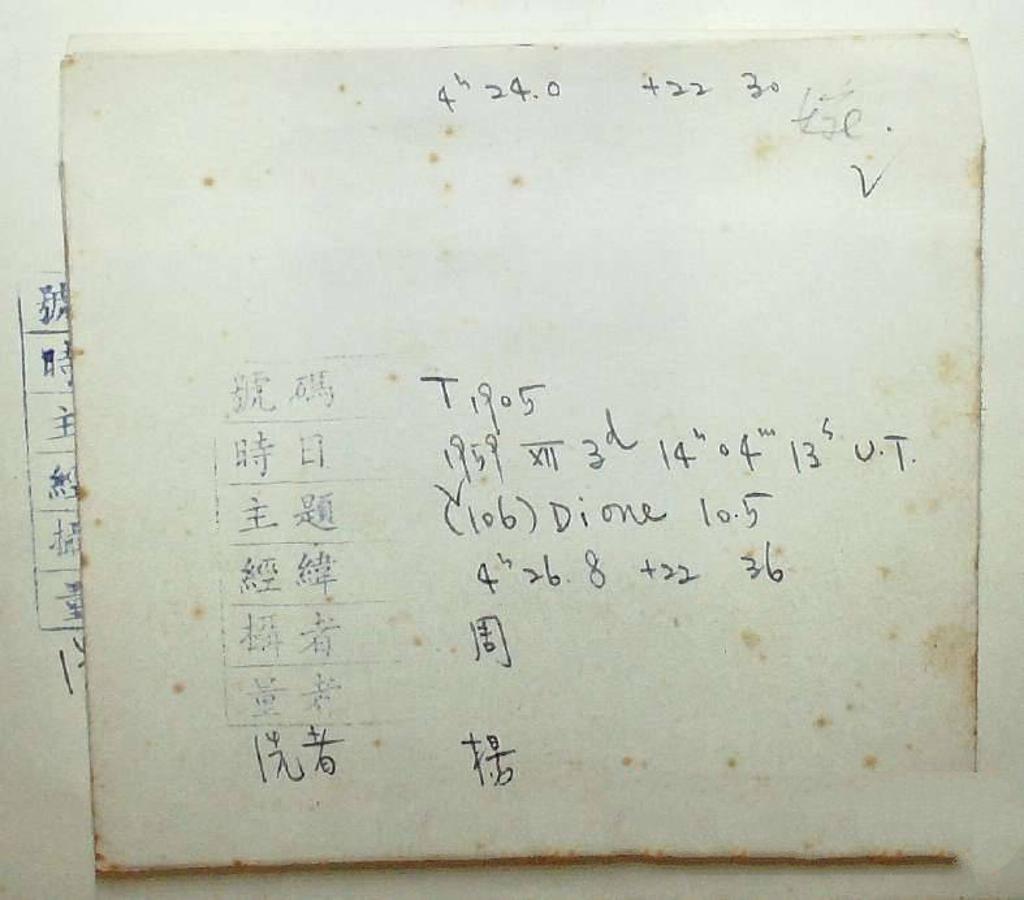 4ʰ 24.0 +22 30
號碼 T1905
時日 1959 XII 3ᵈ 14ʰ 04ᵐ 13ˢ U.T.
主題 (106) Dione 10.5
經緯 4ʰ 26.8 +22 36
攝者 周
量者
洗者 楊
號
時
主
經
攝
量